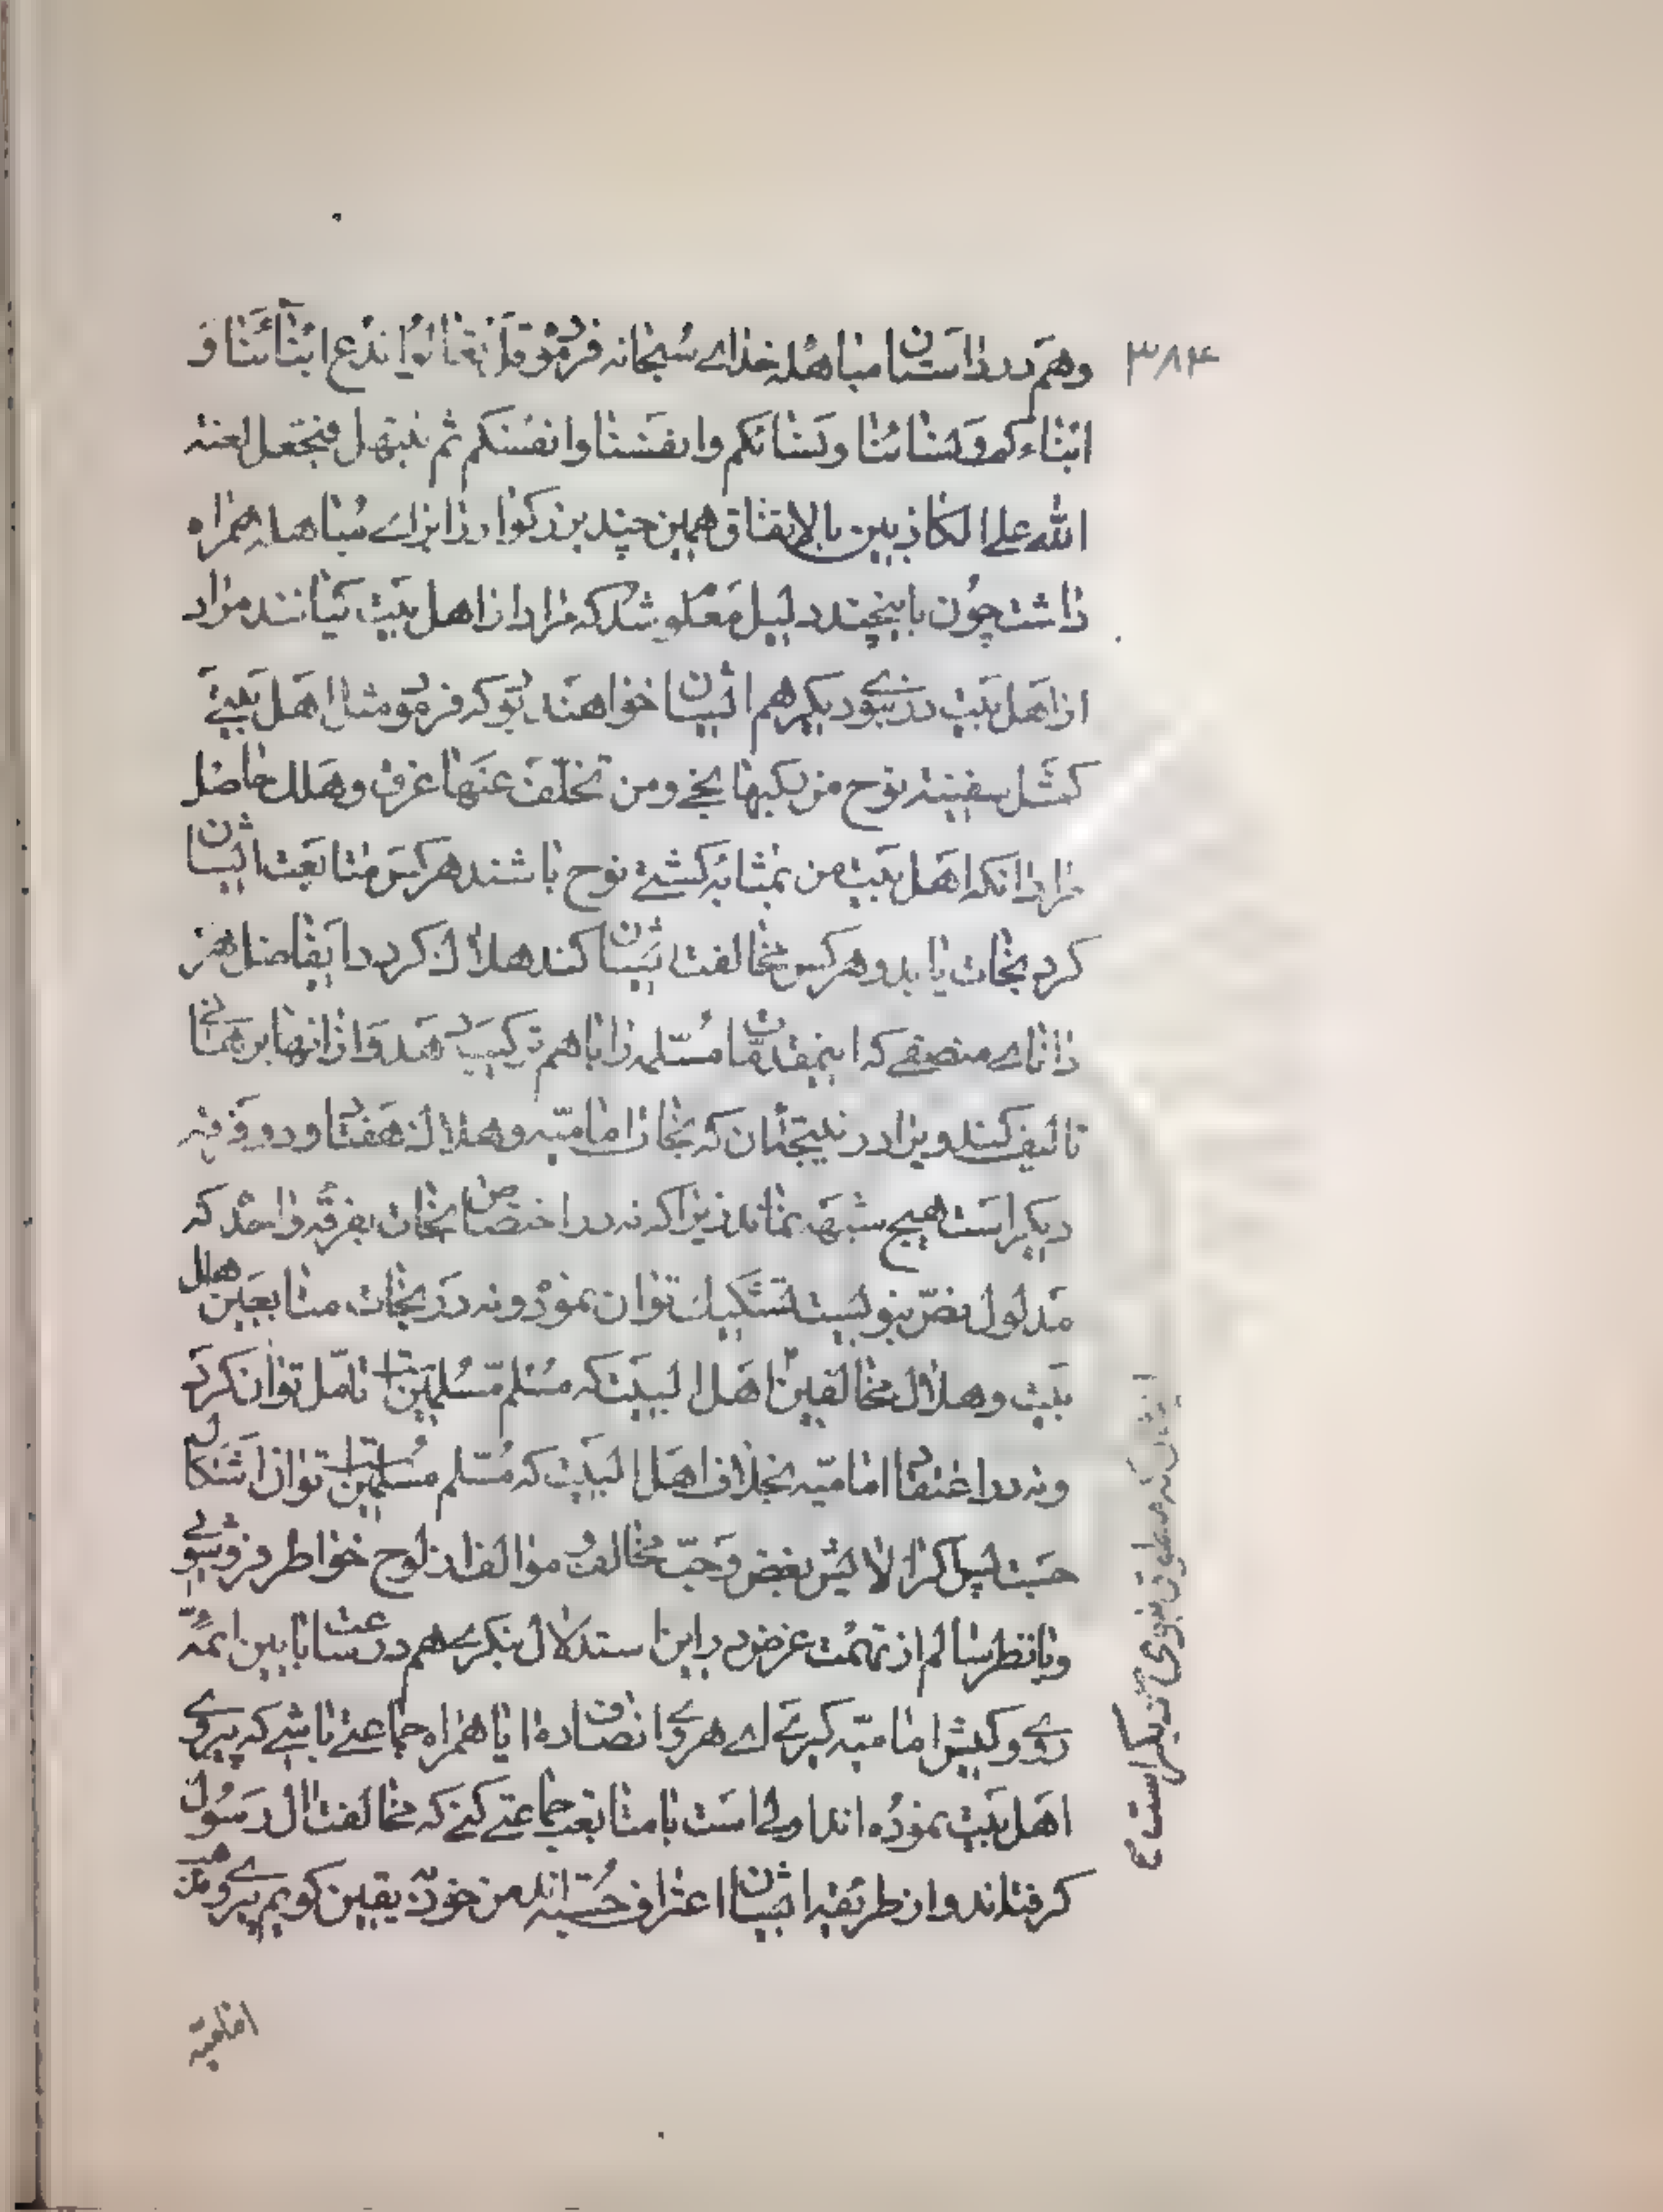 ۳۸۴
وهم در داستان مباهله خدای سبحانه فرمود قل تعالوا ندع ابنآئنا و
ابناءکم و نسائنا و نسائکم و انفسنا و انفسکم ثم نبتهل فنجعل لعنة
الله علی الکاذبین بالاتفاق همین چند بزرکوار را برای مباهله همراه
داشت چون باینچند دلیل معلوم شد که مراد از اهل بیت کیانند مراد
از اهل بیت در نبوی دیکر هم ایشان خواهند بود که فرمود مثل اهل بیتی
کمثل سفینة نوح من رکبها نجی و من تخلّف عنها غرق و هلک حاصل
مراد آنکه اهل بیت من بمثابه کشتی نوح باشند هر کس متابعت ایشان
کرد نجات یابد و هر کس مخالفت ایشان کند هلاک کردد ایفاضل هنر
دانای منصفی که اینمقدمات مسلمه را با هم ترکیب دهد و از آنها برهانی
تالیف کند ویرا در نتیجهٔ آن که نجات امامیّه و هلاک هفتاد و دو فرقه
دیکر است هیچ شبهه نماند زیرا که نه در اختصاص نجات بفرقه واحده که
مدلول نصّ نبویست تشکیک توان نمود و نه در نجات متابعین اهل
بیت و هلاک مخالفین اهل البیت که مسلم مسلمین است تامّل توان کرد
و نه در اعتقاد امامیّه بخلاف اهل البیت که مسلم مسلمین است توان اشکال
جست پس اکر آلایش بغض و حبّ مخالف و موالف از لوح خواطر فرو شوئی
و با نظر سالم از تهمت غرض در این استدلال بنکری هم در ساعت با بین ائمّه
روی و کیش امامیّه کیری ای هروی انصاف ده آیا همراه جماعتی باشی که پیروی
اهل بیت نموده اند اولی است یا متابعت جماعتی کنی که مخالفت آل رسول
کرفته اند و از طریقه ایشان اعتراف جسته اند من خود بیقین کویم پیروی مذهب
امامیّه